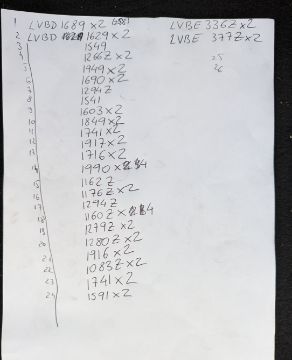 1 LVBD 1689 x 2
2 LVBD 1629 x 2
3 1549
4 1266Z x 2
5 1949 x 2
6 1690 x 2
7 1294Z
8 1541
9 1603 x 2
10 1849 x 2
11 1741 x 2
12 1917 x 2
13 1716 x 2
14 1990 x 4
15 1162 Z
16 1176Z x 2
17 1294Z
18 1160Z x 4
19 1279Z x 2
20 1280Z x 2
21 1916 x 2
22 1083Z x 2
23 1741 x 2
24 1591 x 2
LVBE 336Z x 2
LVBE 377Z x 2
25
26